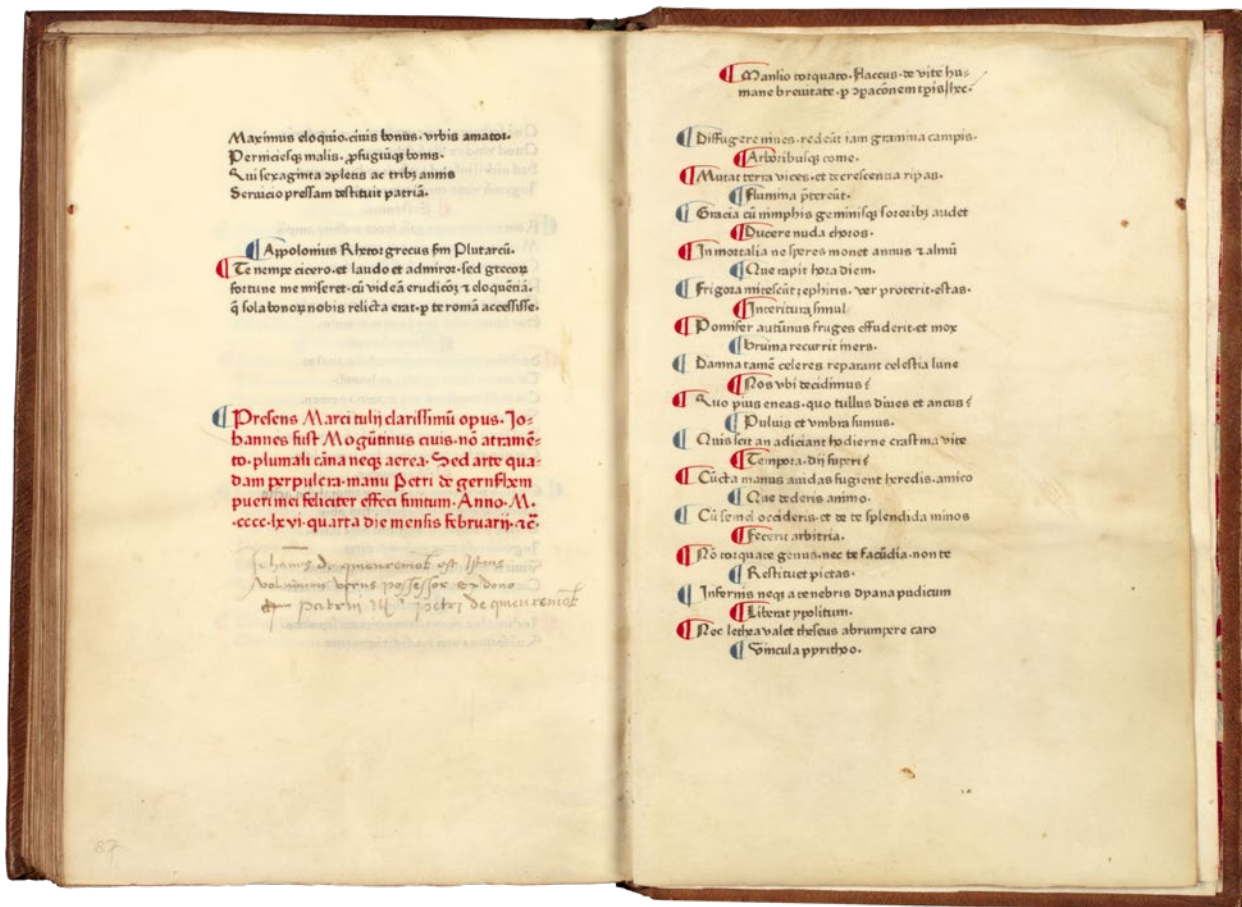 Maximus eloquio. ciuis bonus. vrbis amator.
Perniciesqꝫ malis. ꝓfugiūqꝫ bonis.
Qui sexaginta ↄpletis ac tribꝫ annis
Seruicio pressam destituit patriā.
¶ Appolonius Rhetor grecus ẜm Plutarcū.
¶ Te nempe cicero. et laudo et admiror. sed grecoꝝ
fortune me miseret. cū videā erudicōꝫ ⁊ eloquēciā.
q̄ sola bonoꝝ nobis relicta erat. p te romā accessisse.
¶ Presens Marci tulij clarissimū opus. Jo⸗
hannes fust Mogūtinus ciuis. nō atramē⸗
to. plumali cāna neqꝫ aerea. Sed arte qua⸗
dam perpulcra. manu Petri de gernsshem
pueri mei feliciter effeci finitum. Anno. M.
.cccc. lxvi. quarta die mensis februarij. ⁊c̄.
est Istius
voluminis verus possessor ex dono
patrini petri de
87
¶ Manlio torquato. flaccus. de vite hu⸗
mane breuitate. p ↄpacōnem tp̄is hec.
¶ Diffugere niues. redeūt iam gramina campis.
¶ Arboribusqꝫ come.
¶ Mutat terra vices. et decrescencia ripas.
¶ flumina p̄tereūt.
¶ Gracia cū nimphis geminisqꝫ sororibꝫ audet
¶ Ducere nuda choros.
¶ Inmortalia ne speres monet annus ⁊ almū
¶ Que rapit hora diem.
¶ Frigora mitescūt zephiris. ver proterit. estas.
¶ Interitura simul
¶ Pomifer autūnus fruges effuderit. et mox
¶ bruma recurrit iners.
¶ Damna tamē celeres reparant celestia lune
¶ Nos vbi decidimus?
¶ Quo pius eneas. quo tullus diues et ancus?
¶ Puluis et vmbra sumus.
¶ Quis scit an adiciant hodierne crastina vite
¶ Tempora. dij superi?
¶ Cūcta manus auidas fugient heredis. amico
¶ Que dederis animo.
¶ Cū semel occideris. et de te splendida minos
¶ Fecerit arbitria.
¶ Nō torquate genus. nec te facūdia. non te
¶ Restituet pietas.
¶ Infernis neqꝫ a tenebris dyana pudicum
¶ Liberat ypolitum.
¶ Nec lethea valet theseus abrumpere caro
¶ Vincula pyrithoo.